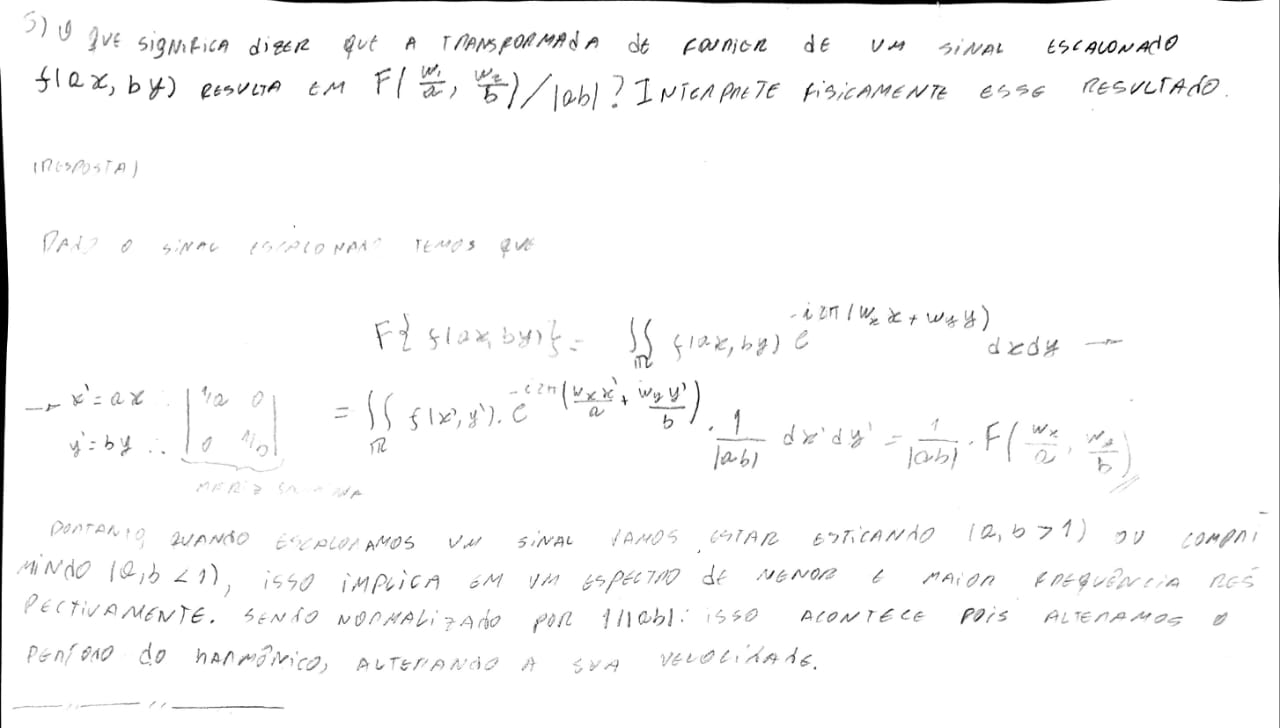 5) O QUE SIGNIFICA DIZER QUE A TRANSFORMADA DE FOURIER DE UM SINAL ESCALONADO
f(ax, by) RESULTA EM F(w₁/a, w₂/b)/|ab|? INTERPRETE FISICAMENTE ESSE RESULTADO.
(RESPOSTA)
DADO O SINAL ESCALONADO TEMOS QUE
F{f(ax, by)} = ∬ f(ax, by) e^{-i2π(w_x x + w_y y)} dxdy →
→ x' = ax = ∬ f(x', y'). e^{-i2π(w_x x'/a + w_y y'/b)} . 1/|ab| dx'dy' = 1/|ab| . F(w_x/a, w_y/b)
y' = by ∴ |1/a 0 0 1/b|
MATRIZ
PORTANTO, QUANDO ESCALONAMOS UM SINAL VAMOS ESTAR ESTICANDO (a, b > 1) OU COMPRI
MINDO (a, b < 1), ISSO IMPLICA EM UM ESPECTRO DE MENOR E MAIOR FREQUÊNCIA RES
PECTIVAMENTE. SENDO NORMALIZADO POR 1/|ab|: ISSO ACONTECE POIS ALTERAMOS O
PERÍODO DO HARMÔNICO, ALTERANDO A SUA VELOCIDADE.